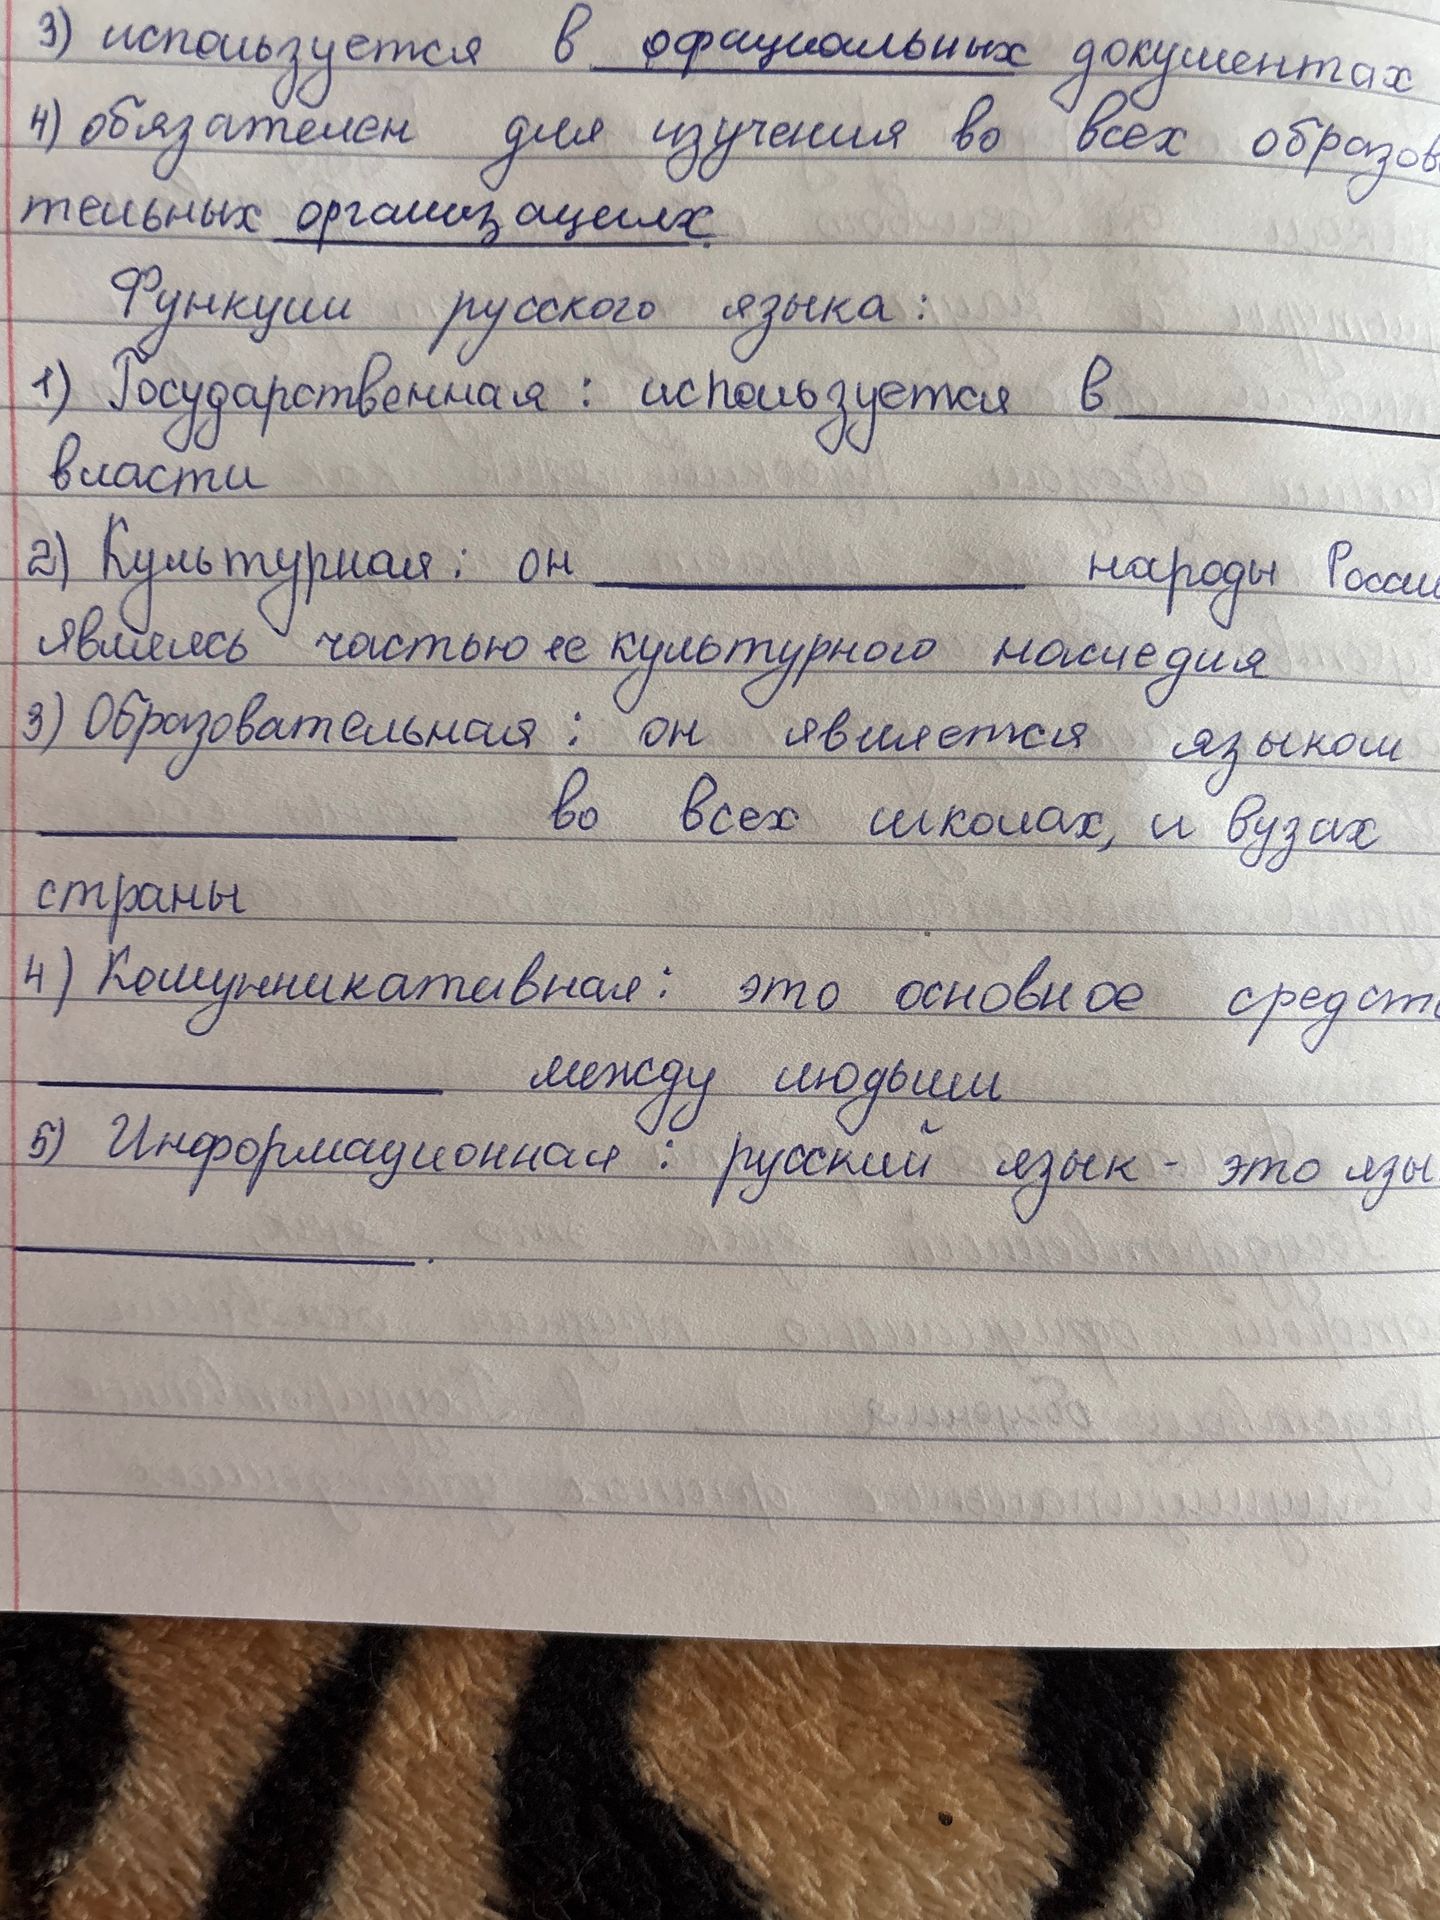 3) используется в официальных документах
4) обязателен для изучения во всех образов
тельных организациях.
Функции русского языка:
1) Государственная: используется в
власти
2) Культурная: он народы Росси
являясь частью ее культурного наследия
3) Образовательная: он является языком
во всех школах, и вузах
страны
4) Комунникативная: это основное средст
между людьми
5) Информационная: русский язык - это язы
.